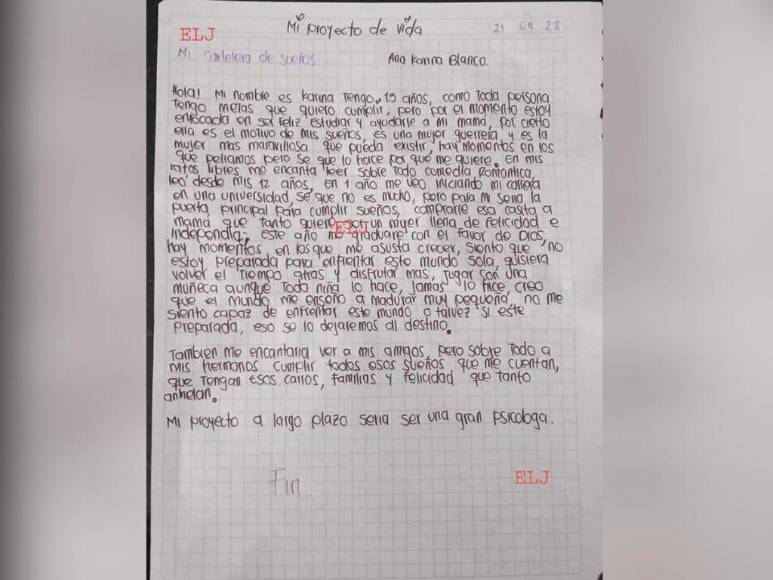 Mi proyecto de vida
21 04 22
ELJ
Mi cartelera de sueños.
Ana Karina Blanco.
Hola! Mi nombre es karina Tengo, 15 años, como Toda persona
Tengo metas que quiero cumplir, pero por el momento estoy
enfocada en ser feliz estudiar y ayudarle a mi mamá, por cierto
ella es el motivo de mis sueños, es una mujer guerrera, y es la
mujer mas maravillosa que pueda existir, hay momentos en los
que peliamos pero se que lo hace por qué me quiere. En mis
ratos libres me encanta leer sobre Todo comedia Romantica,
leo desde mis 12 años, en 1 año me veo iniciando mi carrera
en una universidad, sé que no es mucho, pero para mi seria la
puerta principal para cumplir sueños, comprarle esa casita a
mamá que tanto quiere, un mujer llena de felicidad e
Independia, este año me graduare con el favor de Dios,
ELJ
hay momentos, en los que me asusta crecer, siento que no
estoy preparada para enfrentar este mundo sola, quisiera
volver el tiempo atras y disfrutar mas, jugar con una
muñeca aunque Toda niña lo hace, jamas lo hice, creo
que el mundo me enseño a madurar muy pequeña, no me
siento capaz de enfrentar este mundo o talvez si este
preparada, eso se lo dejaremos al destino.
Tambien me encantaria ver a mis amigos, pero sobre Todo a
mis hermanos cumplir todos esos sueños que me cuentan,
que Tengan esos carros, familias y felicidad que tanto
anhelan.
Mi proyecto a largo plazo seria ser una gran psicologa.
Fin
ELJ